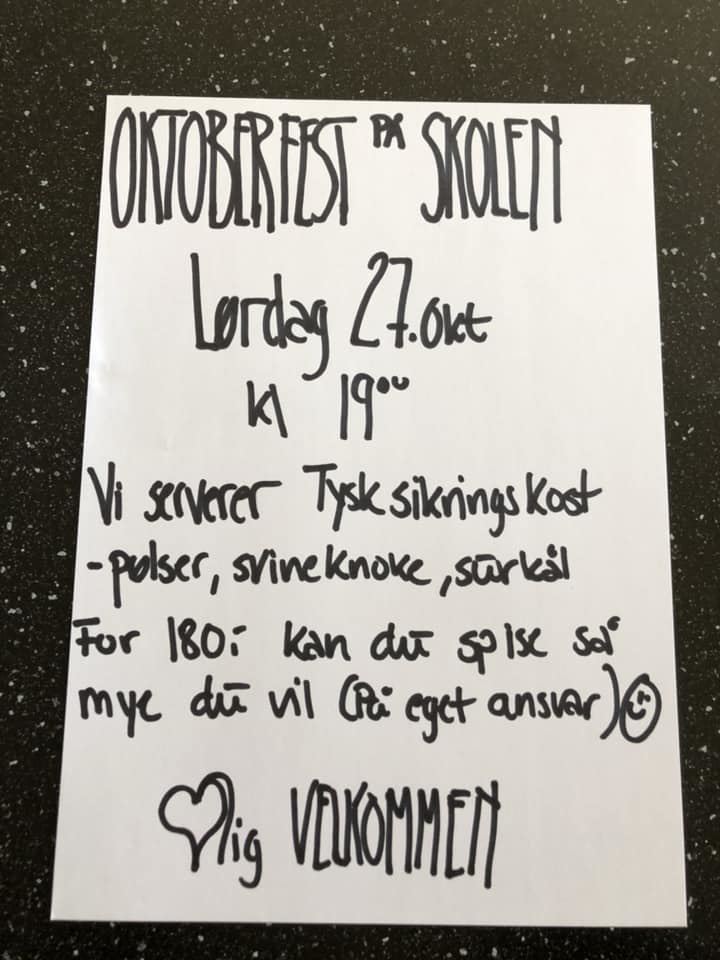 OKTOBERFEST PÅ SKOLEN
Lørdag 27.okt
kl 19⁰⁰
Vi serverer Tysk sikringskost
-pølser, svineknoke, surkål
For 180.- kan du spise så
mye du vil (På eget ansvar)☺
♡lig VELKOMMEN